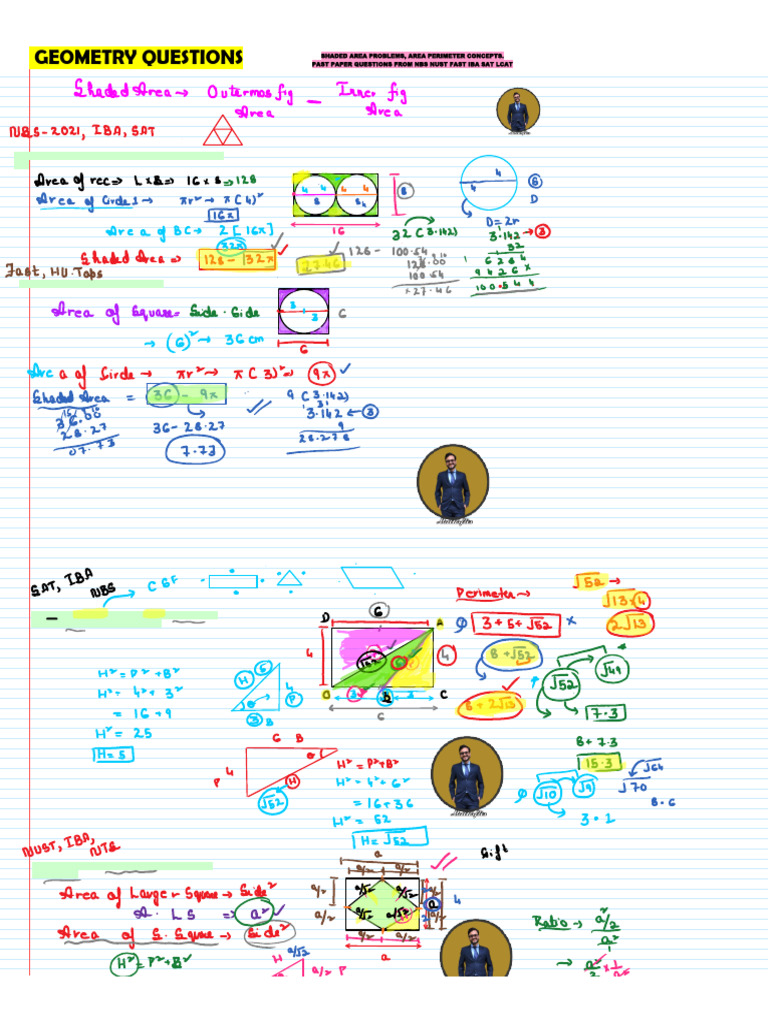 GEOMETRY QUESTIONS
SHADED AREA PROBLEMS, AREA PERIMETER CONCEPTS.
PAST PAPER QUESTIONS FROM NBS NUST FAST IBA SAT LCAT
Shaded Area → Outermost fig Area − Inner fig Area
NBS-2021, IBA, SAT
Area of rec => L×B => 16×8 => 128
Area of Circle 1 → πr² → π(4)²
16π
Area of BC → 2[16π]
32π
Shaded Area => 128 − 32π
27.46
4 4 4 4
8
8
16
4
4
D
D=2r
32(3.142)
128 −
100.54
128.00
100.54
27.46
3.142 → 3
32
6284
9426×
100.544
Fast, HU. Tops
Area of Square = Side·Side
→ (6)² → 36cm
3
3
6
6
Area of Circle → πr² → π(3)² => 9π
Shaded Area = 36 − 9π
36.00
28.27
07.73
36 − 28.27
7.73
9(3.142)
3.142 ← 3
9
28.278
SAT, IBA
NBS
→ CGF
Perimeter →
√52 →
√13×4
2√13
3+5+√52 ×
8+√52
8+2√13
√52
√49
7.3
8+7.3
15.3
√10
√9
3.1
√64
√70
8.6
D 6 A
4
4
√52
O
B
C
3
3
6
H²=P²+B²
H²=4²+3²
=16+9
H²=25
H=5
H
4
P
3 B
6 B
P 4
H
√52
H²=P²+B²
H²=4²+6²
=16+36
H²=52
H=√52
NUST, IBA,
NTS
Gift
Area of Larger Square → Side²
A. LS => a²
Area of S. Square → Side²
H²=P²+B²
a
a/2 a/2
a/2
a/2
a/√2 a/√2
a/√2 a/√2
a/2 a/2
a
H a/√2
a/2 P
Ratio → a²/2
a²
→ a²/2 ×